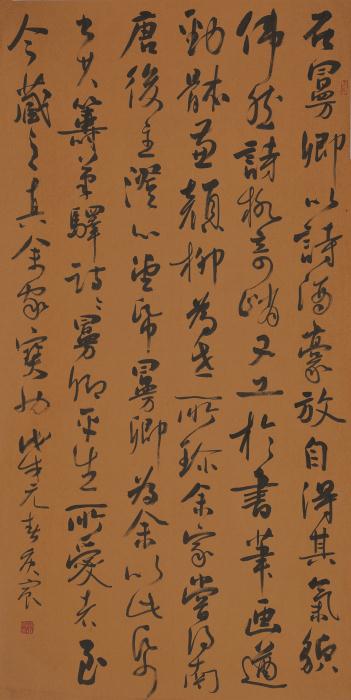 石曼卿以詩酒豪放自得其氣貌
偉然詩格奇峭又工於書筆畫遒
勁體兼顏柳為世所珍余家嘗得南
唐後主澄心堂紙曼卿為余以此紙
書其籌筆驛詩詩曼卿平生所愛者至
今藏之真余家寶也 元春